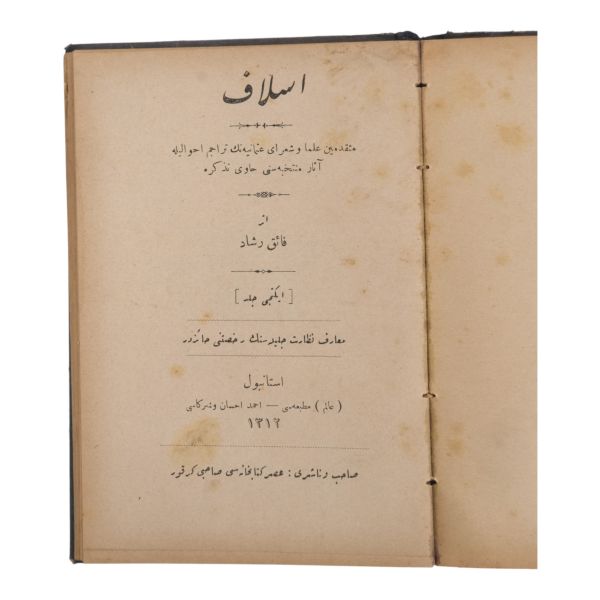 اسلاف
متقدمین علما و شعرای عثمانیه‌نك تراجم احوالیله
آثار منتخبه‌سنی حاوی تذكره
از
فائق رشاد
[ ایكنجی جلد ]
معارف نظارت جلیله‌سنك رخصتنی حائزدر
استانبول
( عالم ) مطبعه‌سی — احمد احسان وشركاسی
١٣١٢
صاحب و ناشری : عصر كتابخانه‌سی صاحبی كرقور